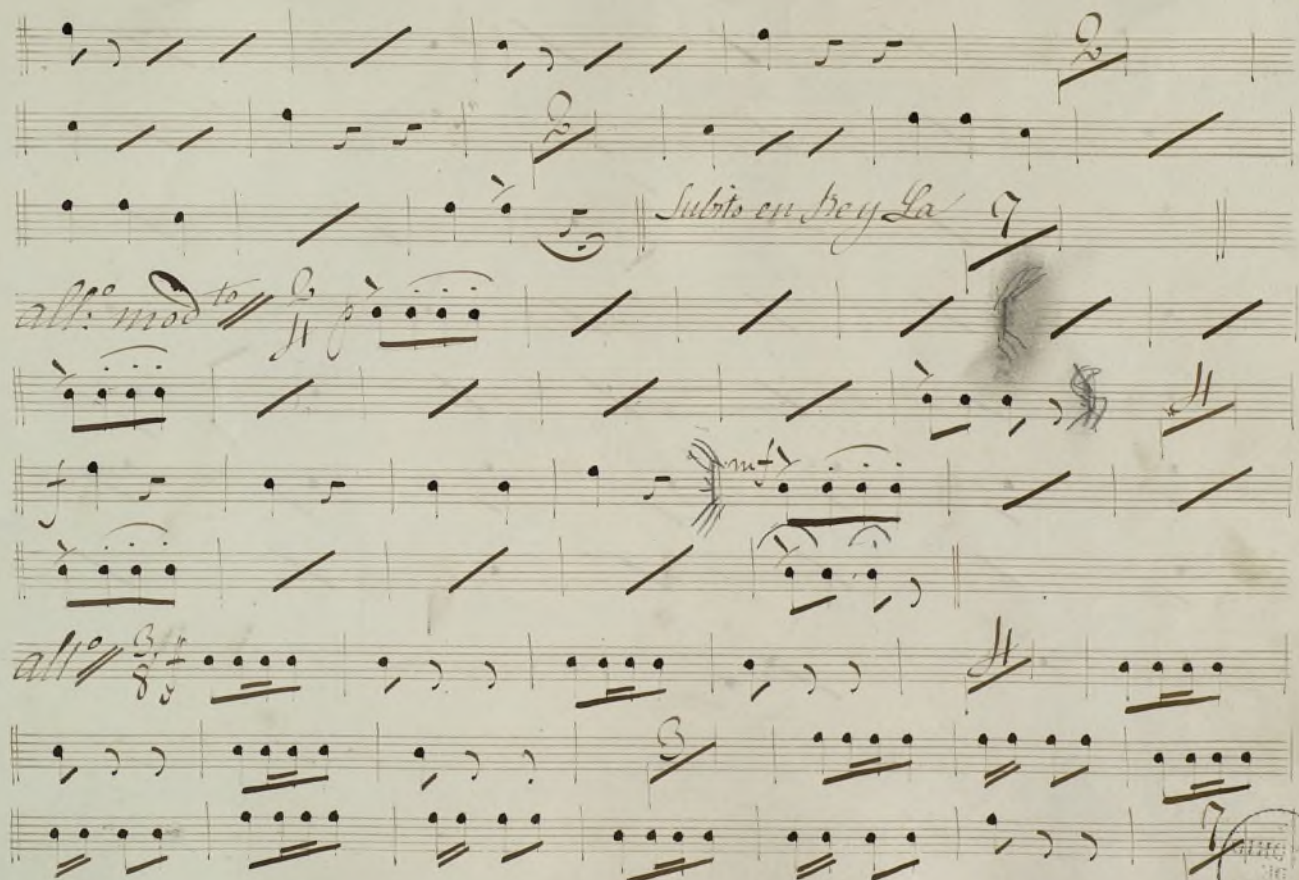 2
2
Subito en Re y La 7
all:º modto 2/4 p
4
f mf
allº 3/8 f
3
7